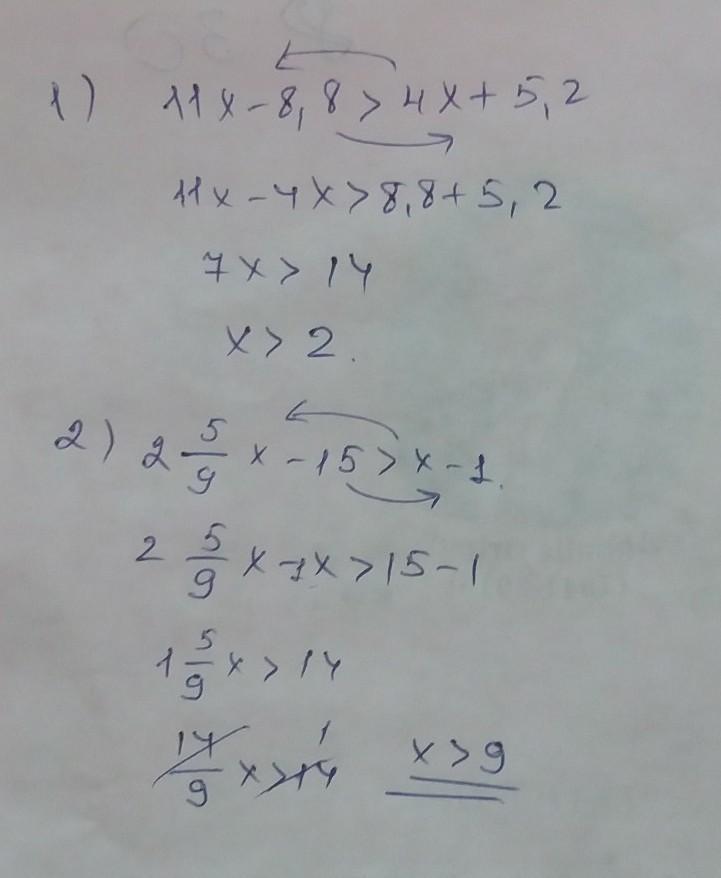 1) 11x - 8,8 > 4x + 5,2
11x - 4x > 8,8 + 5,2
7x > 14
x > 2.
2) 2 5/9 x - 15 > x - 1.
2 5/9 x - 1x > 15 - 1
1 5/9 x > 14
14/9 x > 14 1 x > 9